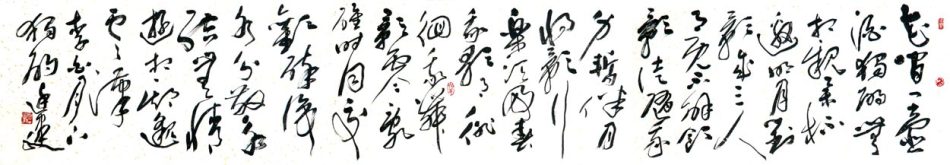 花間一壺
酒獨酌無
相親舉杯
邀明月對
影成三人
月既不解飲
影徒隨我
身暫伴月
將影行
樂須及春
我歌月徘
徊我舞
影零亂
醒時同交
歡醉後
各分散永
結無情
遊相期邈
雲漢
李白月下
獨酌